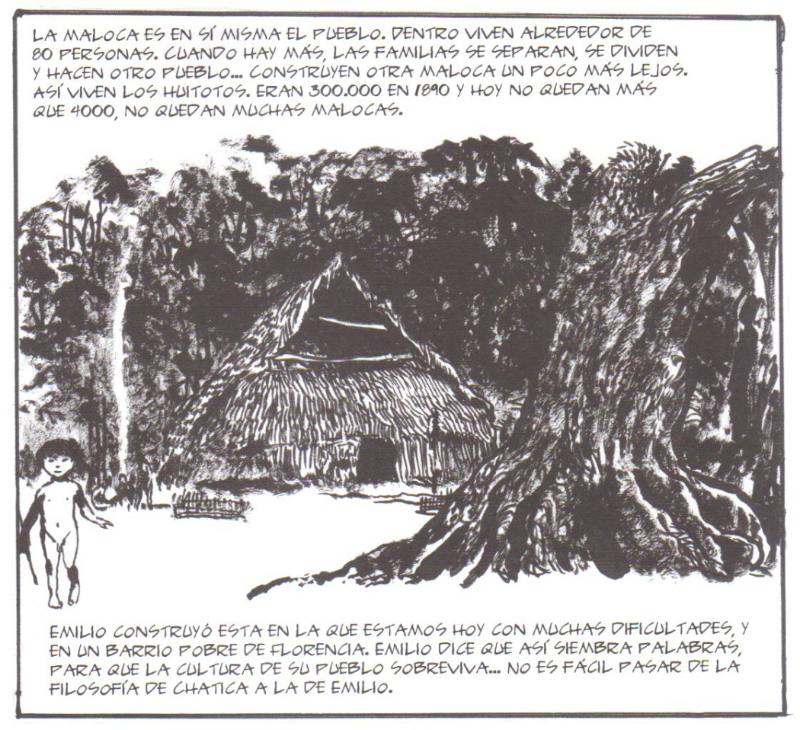 LA MALOCA ES EN SÍ MISMA EL PUEBLO. DENTRO VIVEN ALREDEDOR DE
80 PERSONAS. CUANDO HAY MÁS, LAS FAMILIAS SE SEPARAN, SE DIVIDEN
Y HACEN OTRO PUEBLO... CONSTRUYEN OTRA MALOCA UN POCO MÁS LEJOS.
ASÍ VIVEN LOS HUITOTOS. ERAN 300.000 EN 1890 Y HOY NO QUEDAN MÁS
QUE 4000, NO QUEDAN MUCHAS MALOCAS.
EMILIO CONSTRUYÓ ESTA EN LA QUE ESTAMOS HOY CON MUCHAS DIFICULTADES, Y
EN UN BARRIO POBRE DE FLORENCIA. EMILIO DICE QUE ASÍ SIEMBRA PALABRAS,
PARA QUE LA CULTURA DE SU PUEBLO SOBREVIVA... NO ES FÁCIL PASAR DE LA
FILOSOFÍA DE CHATICA A LA DE EMILIO.